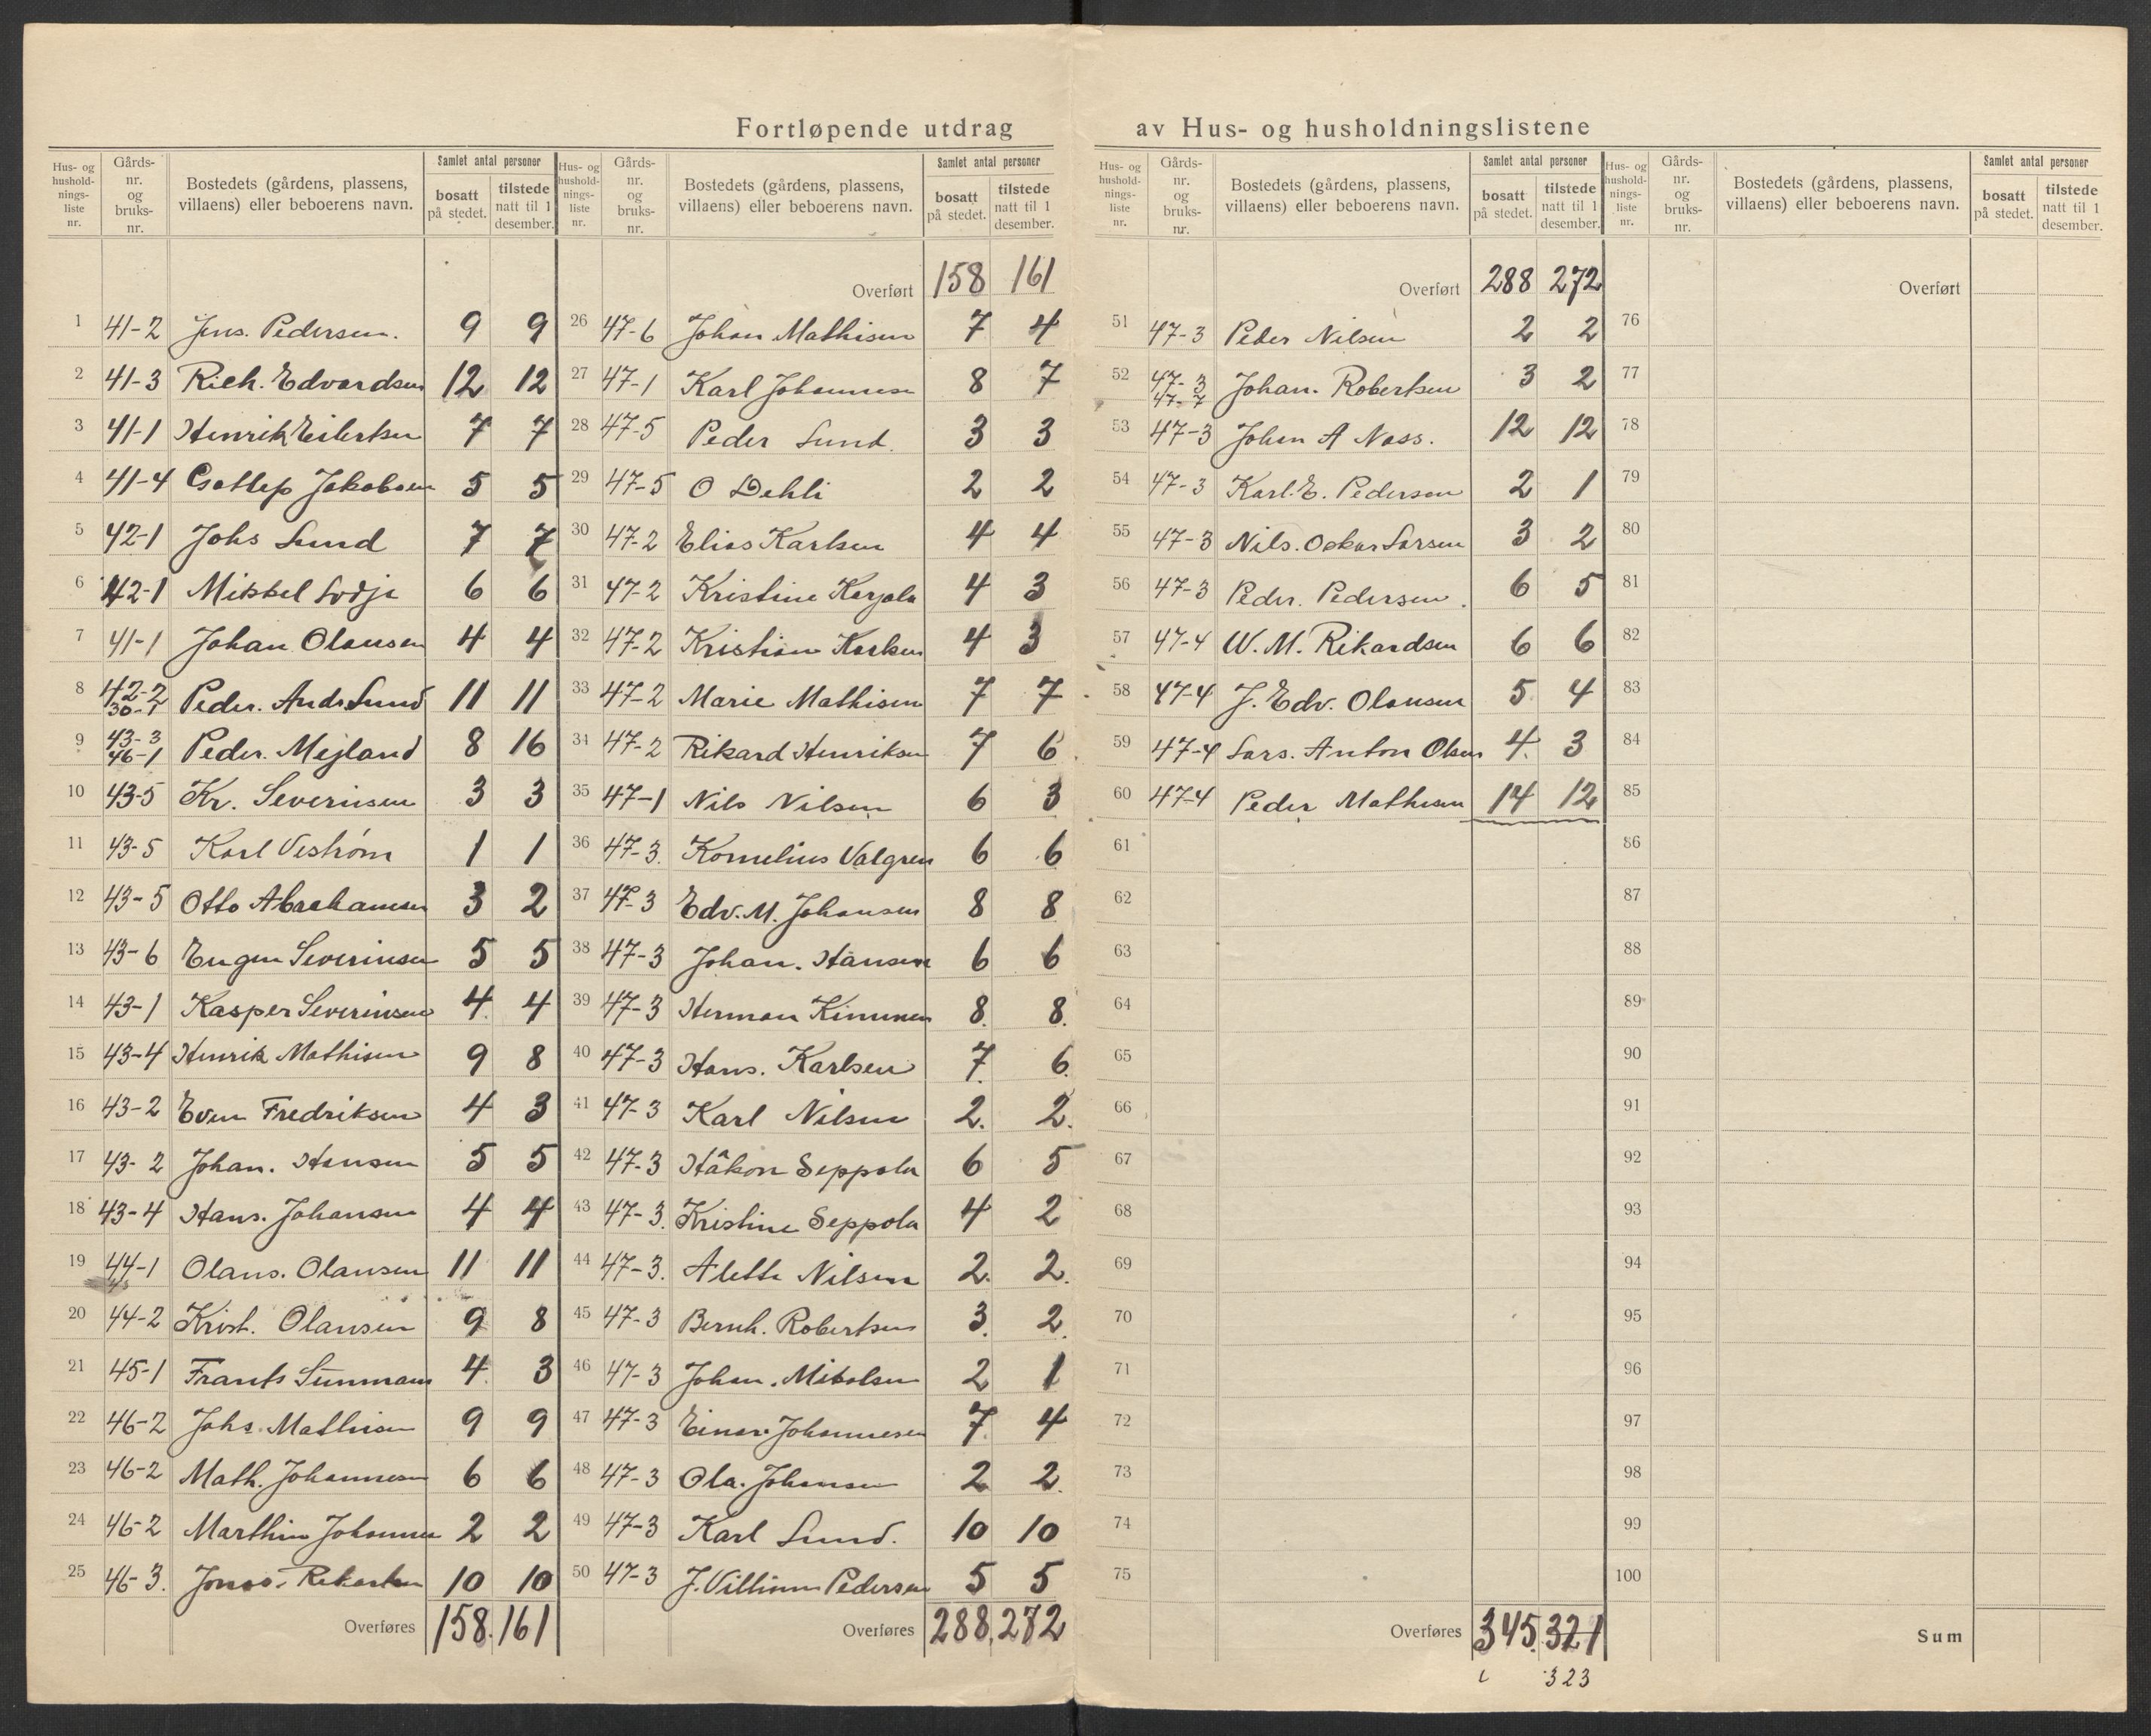 Fortløpende utdrag av Hus- og husholdningslistene
Hus- og husholdnings-liste nr. Gårds-nr. og bruks-nr. Bostedets (gårdens, plassens, villaens) eller beboerens navn. Samlet antal personer bosatt på stedet. tilstede natt til 1 desember.
1 41-2 Jens. Pedersen. 9 9
2 41-3 Rich. Edvardsen 12 12
3 41-1 Henrik Eilertsen 7 7
4 41-4 Gottlep Jakobsen 5 5
5 42-1 Johs Lund 7 7
6 42-1 Mikkel Lodje 6 6
7 41-1 Johan Olausen 4 4
8 42-2 30-1 Peder. Andr. Lund 11 11
9 43-3 46-1 Peder. Mejland 8 16
10 43-5 Kr. Severinsen 3 3
11 43-5 Karl Vestrøm 1 1
12 43-5 Otto Abrahamsen 3 2
13 43-6 Eugen Severinsen 5 5
14 43-1 Kasper Severinsen 4 4
15 43-4 Henrik Mathisen 9 8
16 43-2 Even Fredriksen 4 3
17 43-2 Johan. Hansen 5 5
18 43-4 Hans. Johansen 4 4
19 44-1 Olaus. Olausen 11 11
20 44-2 Krist. Olausen 9 8
21 45-1 Frants Sunmann 4 3
22 46-2 Johs. Mathisen 9 9
23 46-2 Math. Johannesen 6 6
24 46-2 Marthin Johannes 2 2
25 46-3. Jonas. Rikartsen 10 10
Overføres 158. 161
Hus- og husholdnings-liste nr. Gårds-nr. og bruks-nr. Bostedets (gårdens, plassens, villaens) eller beboerens navn. Samlet antal personer bosatt på stedet. tilstede natt til 1 desember.
Overført 158 161
26 47-6 Johan Mathisen 7 4
27 47-1 Karl Johannese 8 7
28 47-5 Peder Lund. 3 3
29 47-5 O Dehli 2 2
30 47-2 Elias Karlsen 4 4
31 47-2 Kristine Kerjala 4 3
32 47-2 Kristian Karlsen 4 3
33 47-2 Marie Mathisen 7 7
34 47-2 Rikard Henriksen 7 6
35 47-1 Nils Nilsen 6 3
36 47-3. Kornelius Valgren 6 6
37 47-3 Edv. M. Johansen 8 8
38 47-3 Johan. Hansen 6 6
39 47-3 Herman Kinunen 8. 8.
40 47-3 Hans. Karlsen 7. 6.
41 47-3 Karl Nilsen 2. 2.
42 47-3 Håkon Seppola 6 5
43 47-3. Kristine Seppola 4 2
44 47-3. Alette Nilsen 2. 2.
45 47-3 Bernh. Robertsen 3. 2.
46 47-3 Johan. Mikalsen 2 1
47 47-3 Einar. Johannesen 7. 4
48 47-3 Ola. Johansen 2 2.
49 47-3 Karl Lund. 10 10
50 47-3 J. Villiam Pedersen 5 5
Overføres 288. 272
Hus- og husholdnings-liste nr. Gårds-nr. og bruks-nr. Bostedets (gårdens, plassens, villaens) eller beboerens navn. Samlet antal personer bosatt på stedet. tilstede natt til 1 desember.
Overført 288 272
51 47-3 Peder Nilsen 2 2
52 47-3 47-7 Johan. Robertsen 3 2
53 47-3 Johan A Nass. 12 12
54 47-3 Karl. E. Pedersen 2 1
55 47-3 Nils. Oskar Larsen 3 2
56 47-3 Peder. Pedersen. 6 5
57 47-4 W. M. Rikardsen 6 6
58 47-4 J. Edv. Olausen 5 4
59 47-4 Lars. Anton Olsen 4. 3
60 47-4 Peder Mathisen 14 12
61
62
63
64
65
66
67
68
69
70
71
72
73
74
75
Overføres 345. 321
323
Hus- og husholdnings-liste nr. Gårds-nr. og bruks-nr. Bostedets (gårdens, plassens, villaens) eller beboerens navn. Samlet antal personer bosatt på stedet. tilstede natt til 1 desember.
Overført
76
77
78
79
80
81
82
83
84
85
86
87
88
89
90
91
92
93
94
95
96
97
98
99
100
Sum